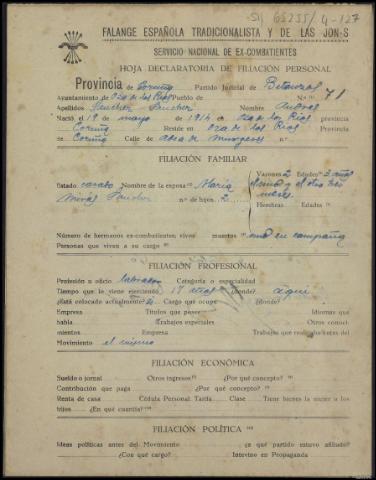 FALANGE ESPAÑOLA TRADICIONALISTA Y DE LAS JON-S
SERVICIO NACIONAL DE EX-COMBATIENTES
HOJA DECLARATORIA DE FILIACIÓN PERSONAL
Provincia de Coruña Partido Judicial de Betanzos
Ayuntamiento de Oza de los Ríos Pueblo de N.º 71
Apellidos Sanchez Sanchez Nombre Andres
Nació el 19 de mayo de 1914 en Oza de los Ríos provincia
Coruña Reside en Oza de los Ríos Provincia
de Coruña Calle de
FILIACIÓN FAMILIAR
Varones 2 Edades 3 años
Estado casado Nombre de la esposa María el uno y el otro tres
n.º de hijos 2 meses
Hembras Edades
Número de hermanos ex-combatientes: vivos muertos uno en campaña
Personas que viven a su cargo
FILIACIÓN PROFESIONAL
Profesión u oficio labrador Categoría o especialidad
Tiempo que la viene ejerciendo 17 años ¿donde? aqui
¿Está colocado actualmente? si Cargo que ocupe ¿donde?
Empresa Títulos que posee Idiomas que
habla Trabajos especiales Otros conoci-
mientos Empresa Trabajos que realizaba antes del
Movimiento el mismo
FILIACIÓN ECONÓMICA
Sueldo o jornal Otros ingresos ¿Por qué concepto?
Contribución que paga ¿Por qué concepto?
Renta de casa Cédula Personal. Tarifa Clase Tiene bienes la mujer o los
hijos ¿En qué cuantía?
FILIACIÓN POLÍTICA
Ideas políticas antes del Movimiento ¿a qué partido estuvo afiliado?
¿Con qué cargo? Intervino en Propaganda